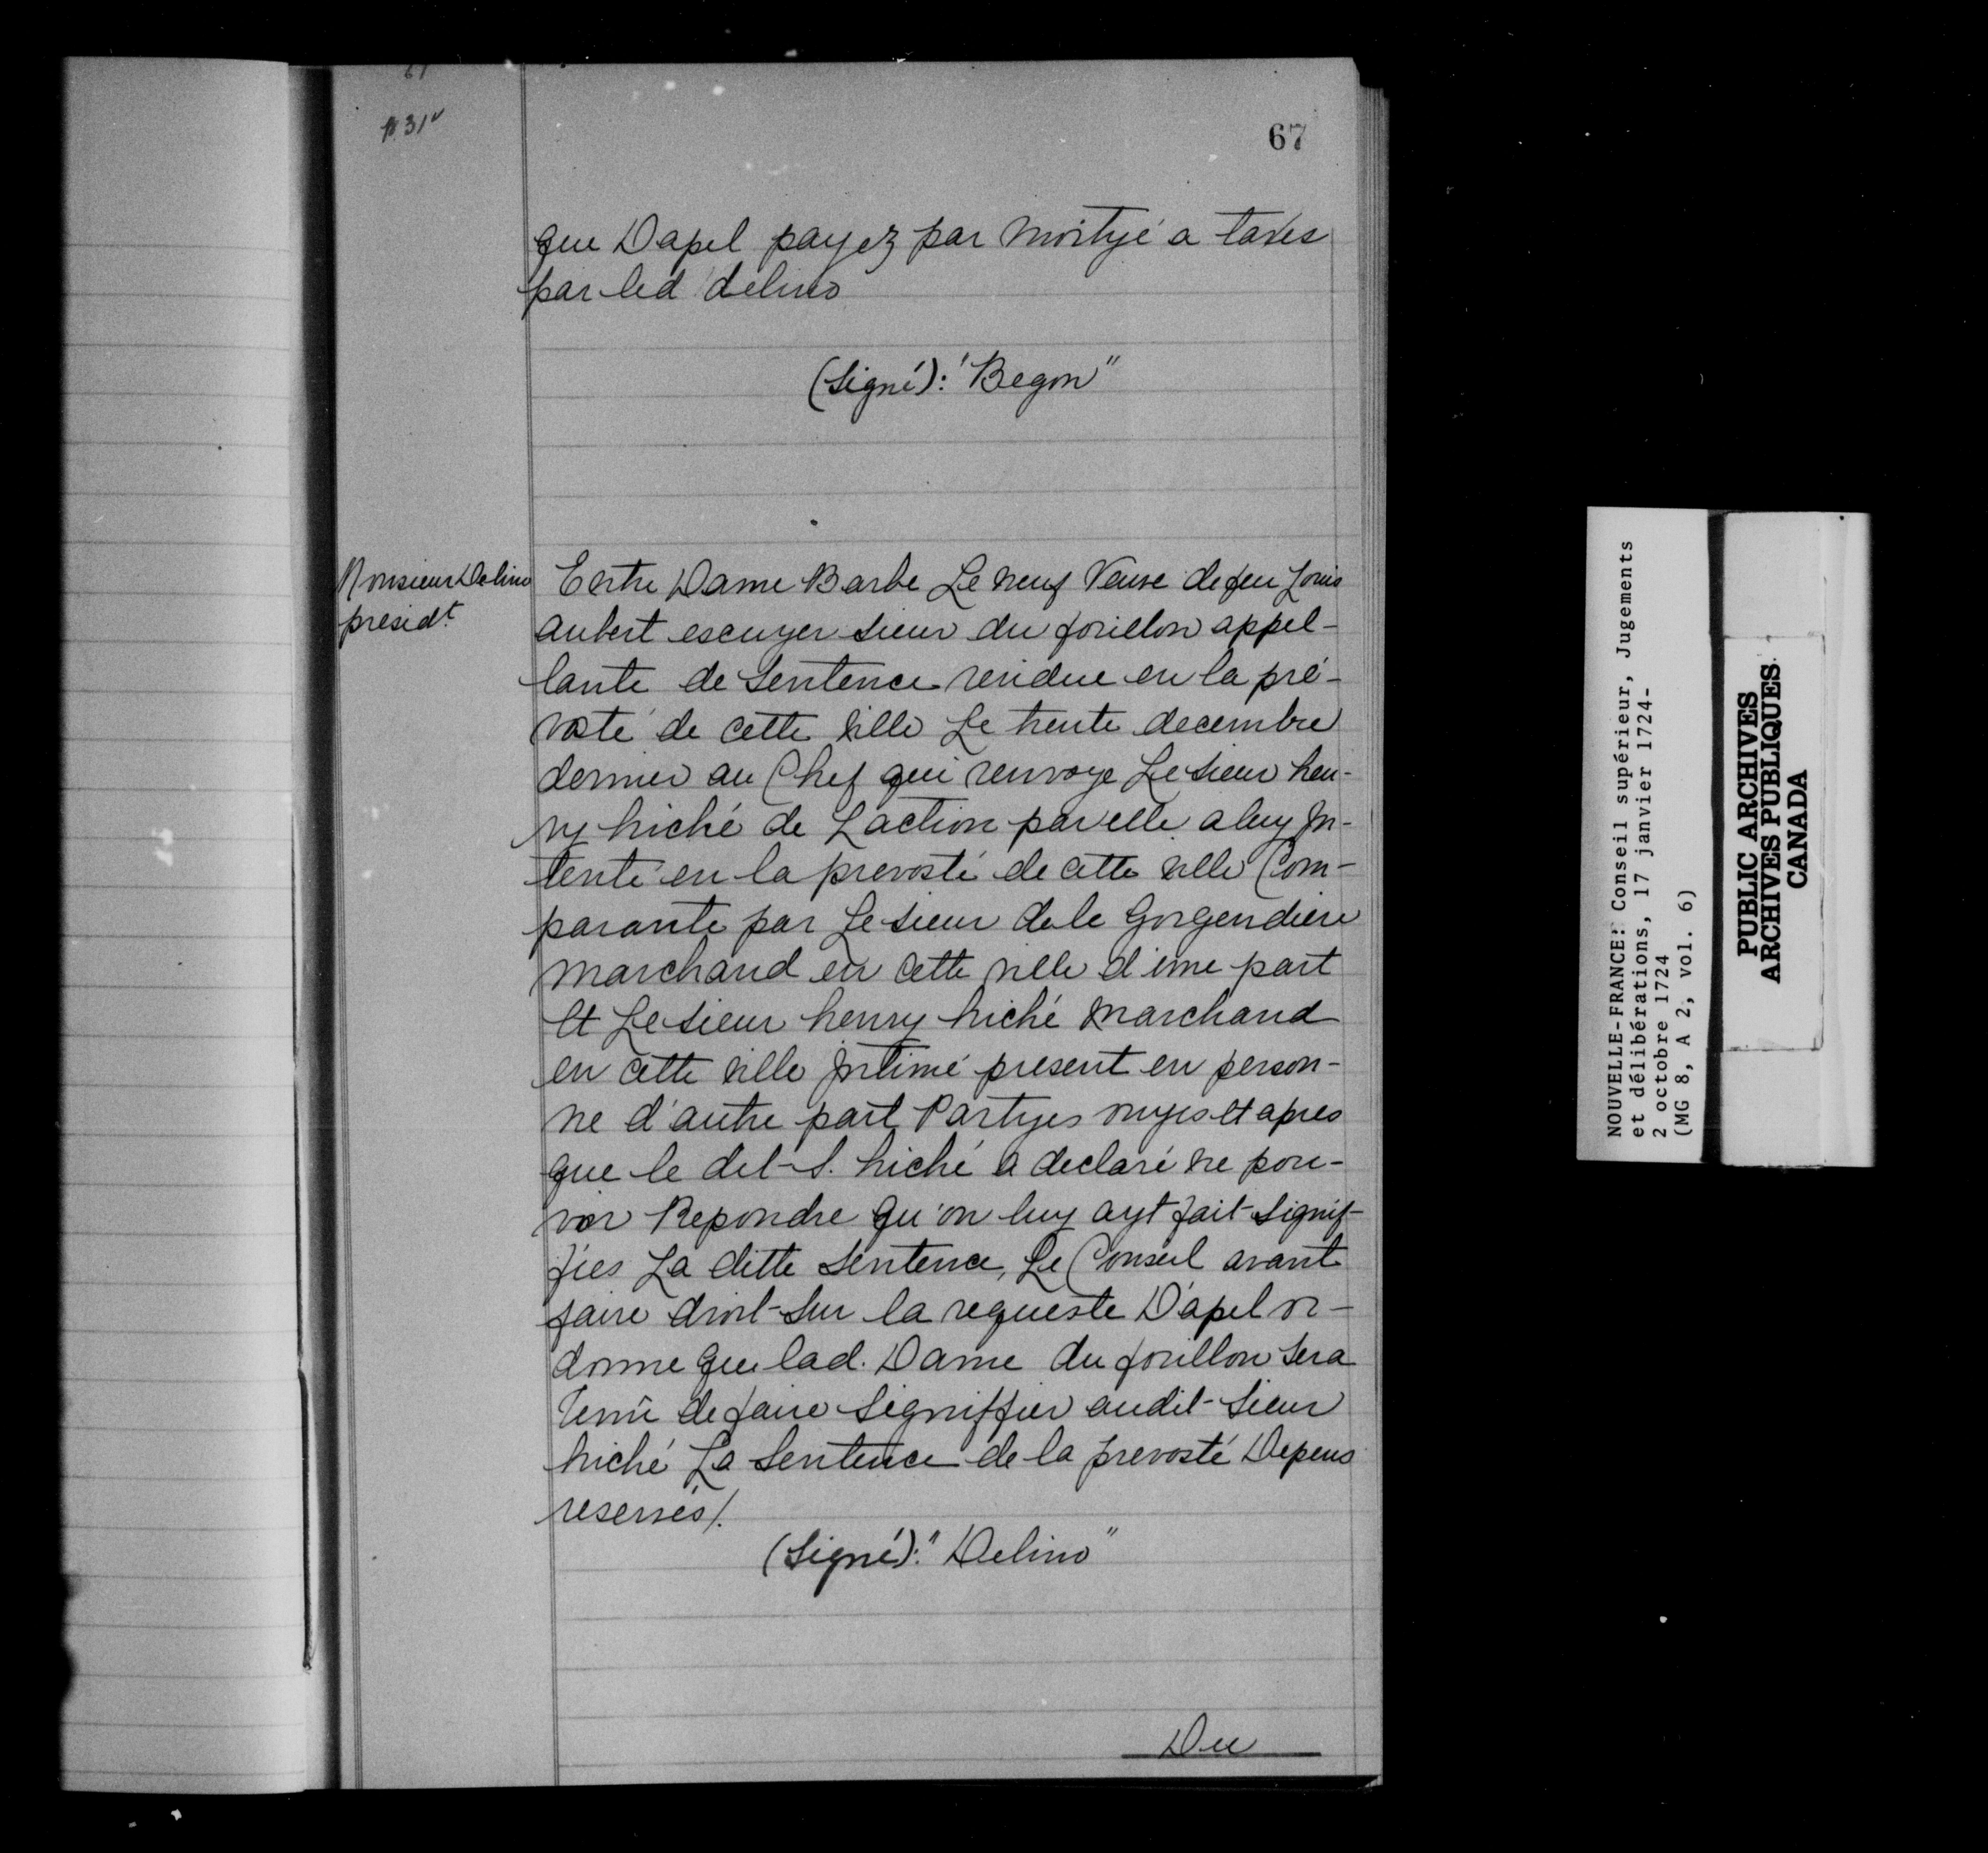 67
fo 31v
67
que Dapel payez par moityé a taxes
par led delino
(Signé): "Begon"
Monsieur Delino
presidt.
Entre Dame Barbe Le neuf Veuve de feu Louis
aubert escuyer sieur du forillon appel-
lante de Sentence rendue en la pré-
vosté de cette ville Le trente decembre
dernier au Chef qui renvoye Le sieur hen-
ry hiché de Laction par elle a luy In-
tenté en la prevosté de cette ville Com-
parante par Le sieur de le Gorgendiere
marchand en cette ville d'une part
Et Le sieur henry hiché marchand
en cette ville Intimé present en person-
ne d'autre part Partyes ouyes et apres
que le dit S. hiché a declaré ne pou-
voir Repondre qu'on luy ayt fait signif-
fier La ditte Sentence, Le Conseil avant
faire droit sur la requeste D'apel or-
donne que lad. Dame du forillon sera
Tenû de faire Signiffier audit Sieur
hiché La Sentence de la prevosté Depens
reservés/.
(Signé): "Delino"
Du
NOUVELLE-FRANCE: Conseil supérieur, Jugements
et délibérations, 17 janvier 1724-
2 octobre 1724
(MG 8, A 2, vol. 6)
PUBLIC ARCHIVES
ARCHIVES PUBLIQUES
CANADA